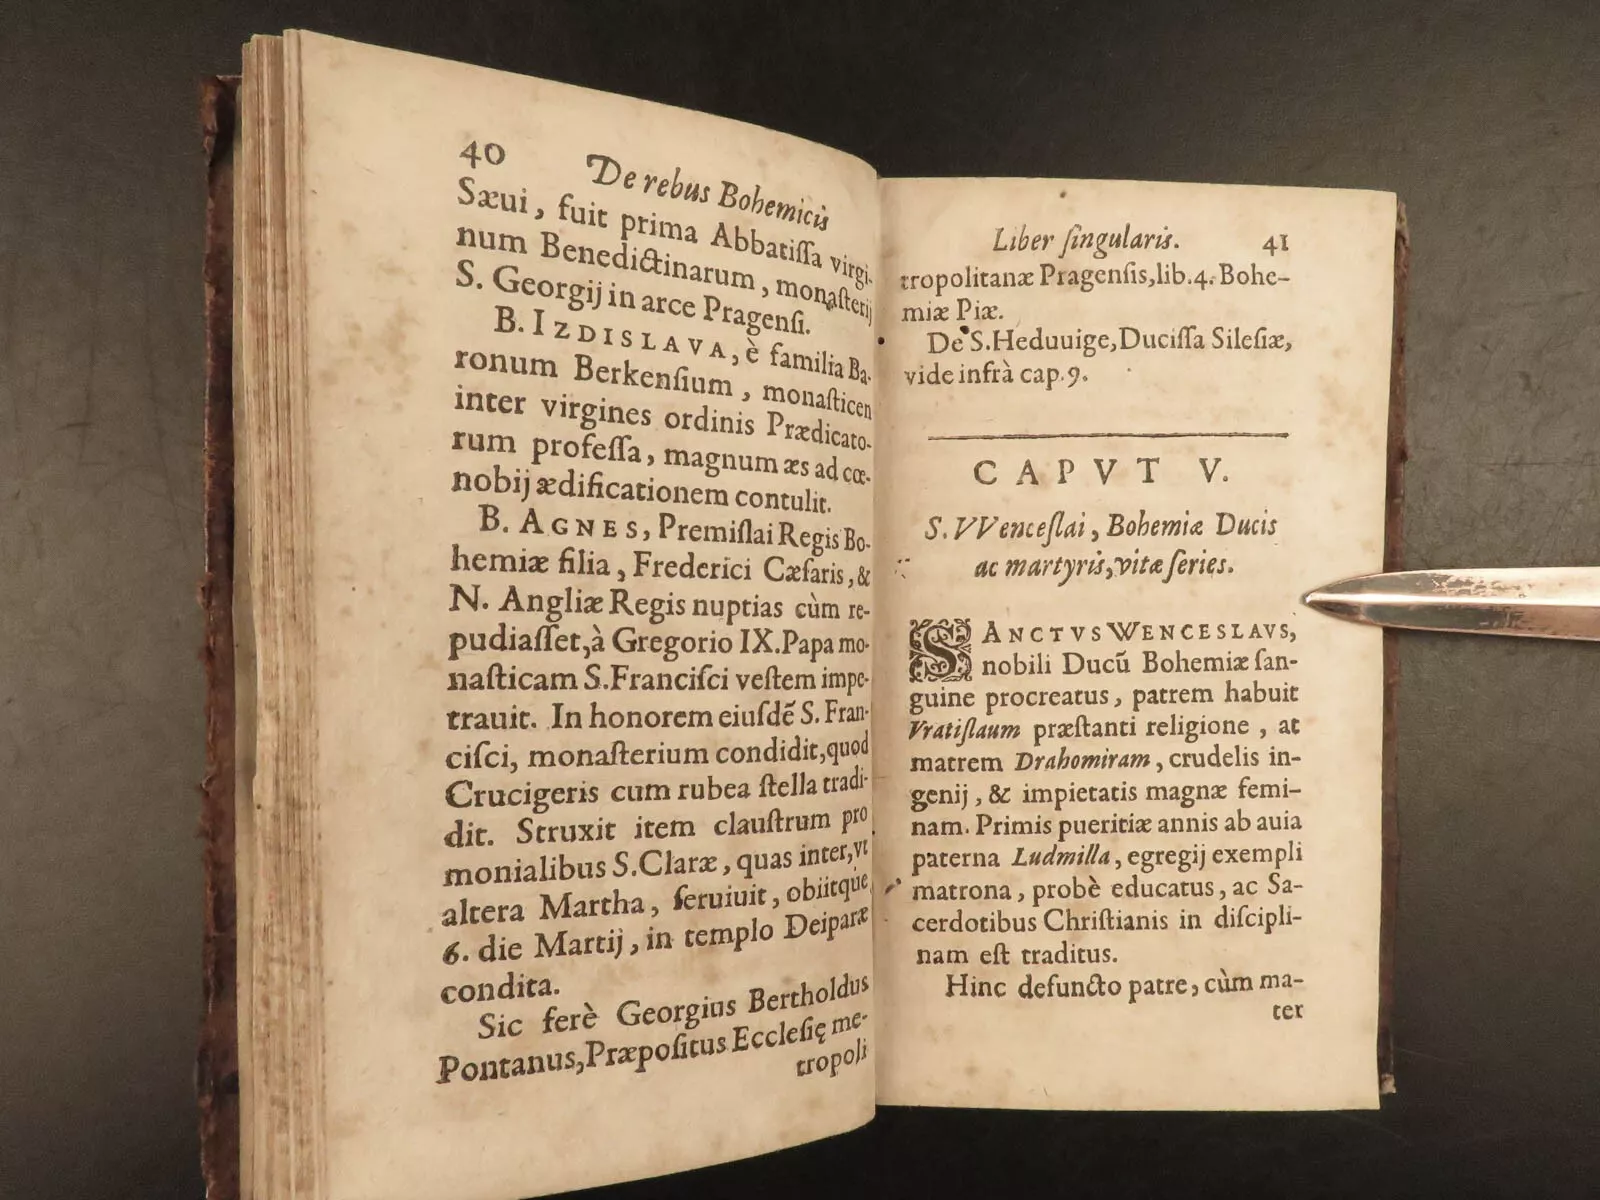 40 De rebus Bohemicis
Sæui, fuit prima Abbatiſſa virgi-
num Benedictinarum, monaſterij
S. Georgij in arce Pragenſi.
B. IZDISLAVA, è familia Ba-
ronum Berkenſium, monaſticen
inter virgines ordinis Prædicato-
rum profeſſa, magnum æs ad cœ-
nobij ædificationem contulit.
B. AGNES, Premiſlai Regis Bo-
hemiæ filia, Frederici Cæſaris, &
N. Angliæ Regis nuptias cùm re-
pudiaſſet, à Gregorio IX. Papa mo-
naſticam S. Franciſci veſtem impe-
trauit. In honorem eiuſdē S. Fran-
ciſci, monaſterium condidit, quod
Crucigeris cum rubea ſtella tradi-
dit. Struxit item clauſtrum pro
monialibus S. Claræ, quas inter, vt
altera Martha, ſeruiuit, obiitque
6. die Martij, in templo Deiparæ
condita.
Sic ferè Georgius Bertholdus
Pontanus, Præpoſitus Eccleſię me-
tropoli
Liber ſingularis. 41
tropolitanæ Pragenſis, lib. 4. Bohe-
miæ Piæ.
De S. Heduuige, Duciſſa Sileſiæ,
vide infrà cap. 9.
CAPVT V.
S. VVenceſlai, Bohemiæ Ducis
ac martyris, vitæ ſeries.
SANCTVS WENCESLAVS,
nobili Ducū Bohemiæ ſan-
guine procreatus, patrem habuit
Vratiſlaum præſtanti religione, at
matrem Drahomiram, crudelis in-
genij, & impietatis magnæ femi-
nam. Primis pueritiæ annis ab auia
paterna Ludmilla, egregij exempli
matrona, probè educatus, ac Sa-
cerdotibus Chriſtianis in diſcipli-
nam eſt traditus.
Hinc defuncto patre, cùm ma-
ter